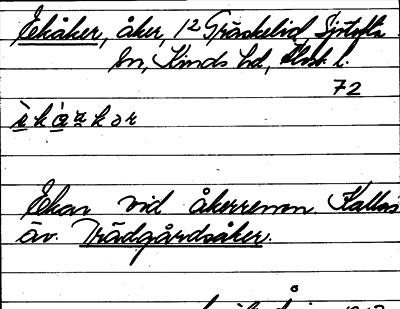 Ekåker, åker, 12 Gräskelid, Sjötofta
sn, Kinds hd, Älvsb. l.
72
Ekar vid åkerrenen. Kallas
äv. Trädgårdsåker.